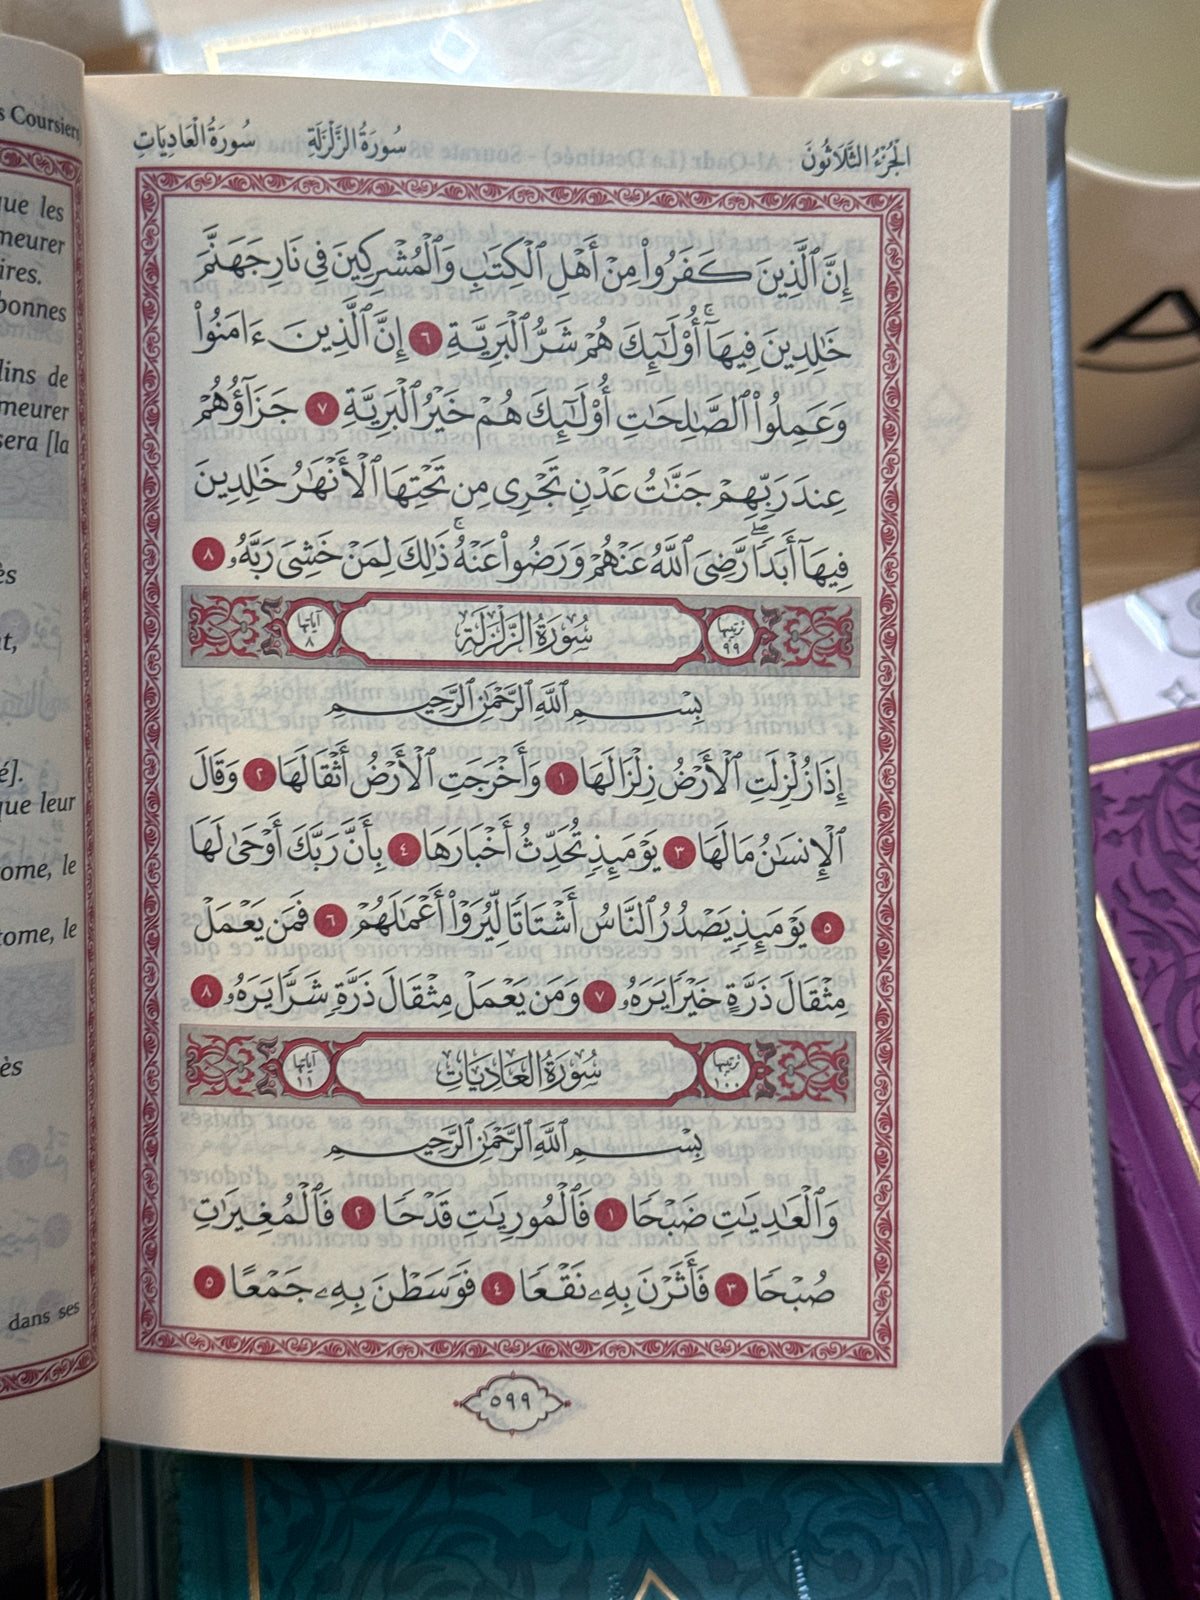 الجُزْءُ الثَّلَاثُونَ سُورَةُ الزَّلْزَلَةِ سُورَةُ الْعَادِيَاتِ
إِنَّ ٱلَّذِينَ كَفَرُوا۟ مِنْ أَهْلِ ٱلْكِتَٰبِ وَٱلْمُشْرِكِينَ فِى نَارِ جَهَنَّمَ
خَٰلِدِينَ فِيهَآ ۚ أُو۟لَٰٓئِكَ هُمْ شَرُّ ٱلْبَرِيَّةِ ٦ إِنَّ ٱلَّذِينَ ءَامَنُوا۟
وَعَمِلُوا۟ ٱلصَّٰلِحَٰتِ أُو۟لَٰٓئِكَ هُمْ خَيْرُ ٱلْبَرِيَّةِ ٧ جَزَآؤُهُمْ
عِندَ رَبِّهِمْ جَنَّٰتُ عَدْنٍ تَجْرِى مِن تَحْتِهَا ٱلْأَنْهَٰرُ خَٰلِدِينَ
فِيهَآ أَبَدًا ۖ رَّضِىَ ٱللَّهُ عَنْهُمْ وَرَضُوا۟ عَنْهُ ۚ ذَٰلِكَ لِمَنْ خَشِىَ رَبَّهُۥ ٨
ترتيبها ٩٩ سُورَةُ الزَّلْزَلَةِ آياتها ٨
بِسْمِ ٱللَّهِ ٱلرَّحْمَٰنِ ٱلرَّحِيمِ
إِذَا زُلْزِلَتِ ٱلْأَرْضُ زِلْزَالَهَا ١ وَأَخْرَجَتِ ٱلْأَرْضُ أَثْقَالَهَا ٢ وَقَالَ
ٱلْإِنسَٰنُ مَا لَهَا ٣ يَوْمَئِذٍ تُحَدِّثُ أَخْبَارَهَا ٤ بِأَنَّ رَبَّكَ أَوْحَىٰ لَهَا
٥ يَوْمَئِذٍ يَصْدُرُ ٱلنَّاسُ أَشْتَاتًا لِّيُرَوْا۟ أَعْمَٰلَهُمْ ٦ فَمَن يَعْمَلْ
مِثْقَالَ ذَرَّةٍ خَيْرًا يَرَهُۥ ٧ وَمَن يَعْمَلْ مِثْقَالَ ذَرَّةٍ شَرًّا يَرَهُۥ ٨
ترتيبها ١٠٠ سُورَةُ العَادِيَاتِ آياتها ١١
بِسْمِ ٱللَّهِ ٱلرَّحْمَٰنِ ٱلرَّحِيمِ
وَٱلْعَٰدِيَٰتِ ضَبْحًا ١ فَٱلْمُورِيَٰتِ قَدْحًا ٢ فَٱلْمُغِيرَٰتِ
صُبْحًا ٣ فَأَثَرْنَ بِهِۦ نَقْعًا ٤ فَوَسَطْنَ بِهِۦ جَمْعًا ٥
٥٩٩
Coursiers
que les
meurer
ires.
bonnes
dins de
meurer
sera [la
é].
que leur
tome, le
tome, le
dans ses
A